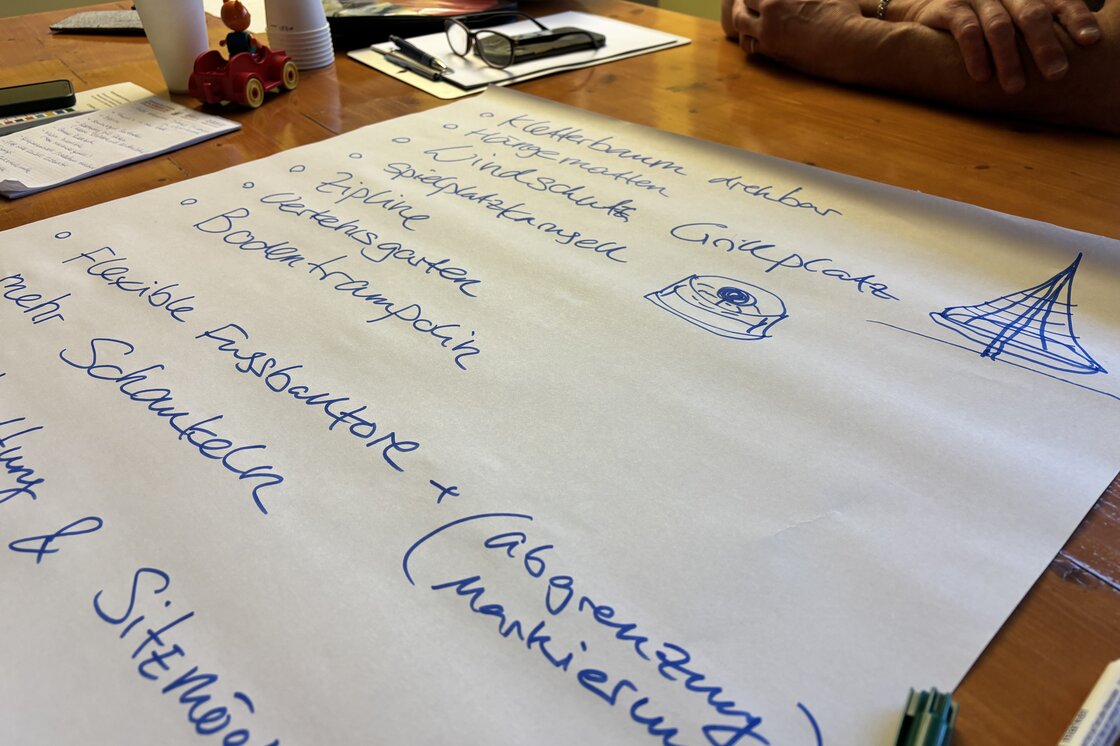 ○ Kletterbaum drehbar
○ Hängematten
○ Windschutz Grillplatz
○ Spielplatzkarusell
○ Zipline
○ Verkehrsgarten
○ Bodentrampolin
○ Flexible Fussballtore + (abgrenzung
Markierun
mehr Schaukeln
ttung & Sitzmög